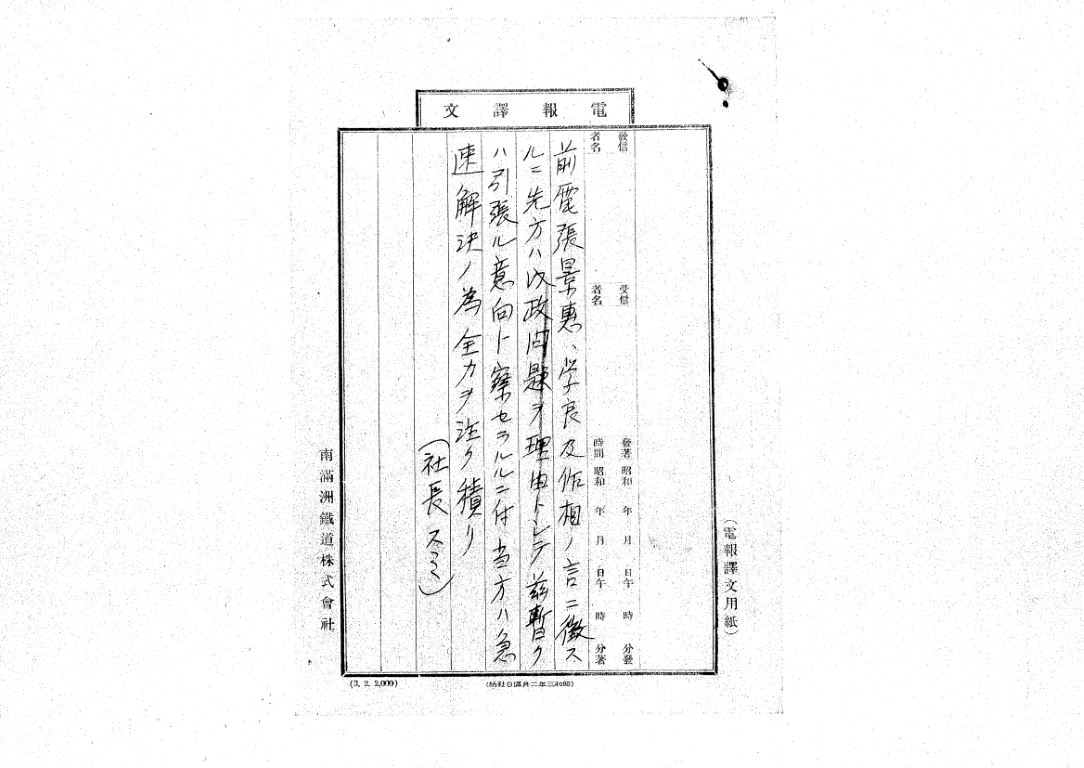 電報譯文
發信者名
受信者名
發著時間 昭和 年 月 日午 時 分發
昭和 年 月 日午 時 分著
前電張景惠、学良及作相ノ言ニ徴ス
ルニ先方ハ内政問題ヲ理由トシテ茲暫ク
ハ引張ル意向ト察セラルルニ付当方ハ急
速解決ノ為全力ヲ注ク積リ
(社長スミ)
南滿洲鐵道株式會社
(電報譯文用紙)
(3. 2. 2,000)